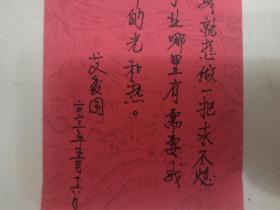 就想做一把永不熄
业哪里有需要我
的光和热。
艾爱国
二〇二三年五月十六日